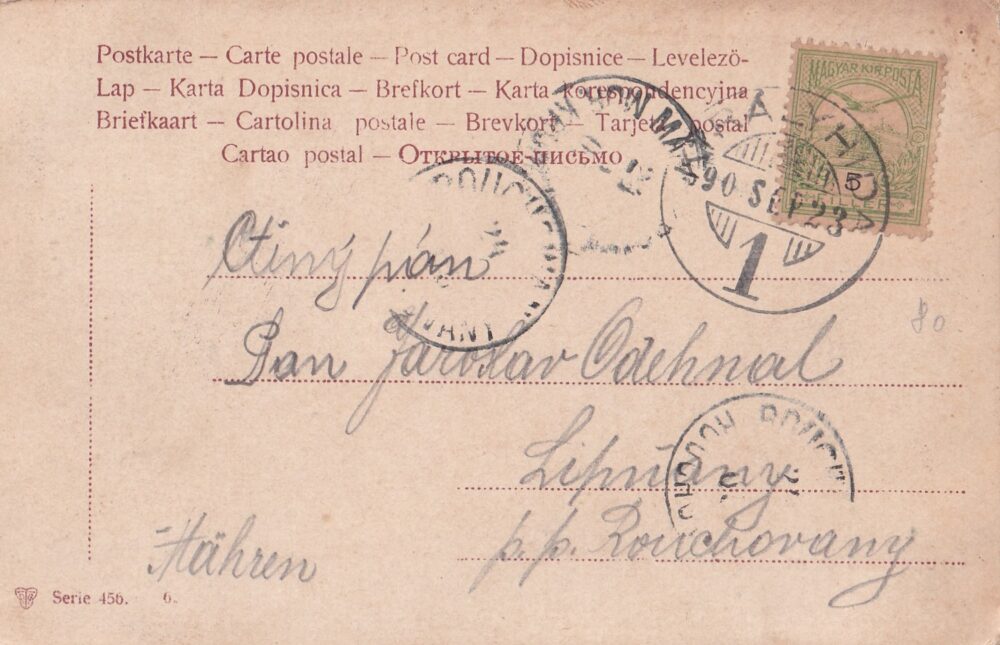 Postkarte — Carte postale — Post card — Dopisnice — Levelező-
Lap — Karta Dopisnica — Brefkort — Karta korespondencyjna
Briefkaart — Cartolina postale — Brevkort — Tarjeta postal
Cartao postal — Открытое письмо
MAGYAR KIR. POSTA
5
FILLER
SEP 23
1
80
Ctěný pán
Pan Jaroslav Odehnal
Lipňany
p. p. Rouchovany
Mähren
Serie 456. 6.